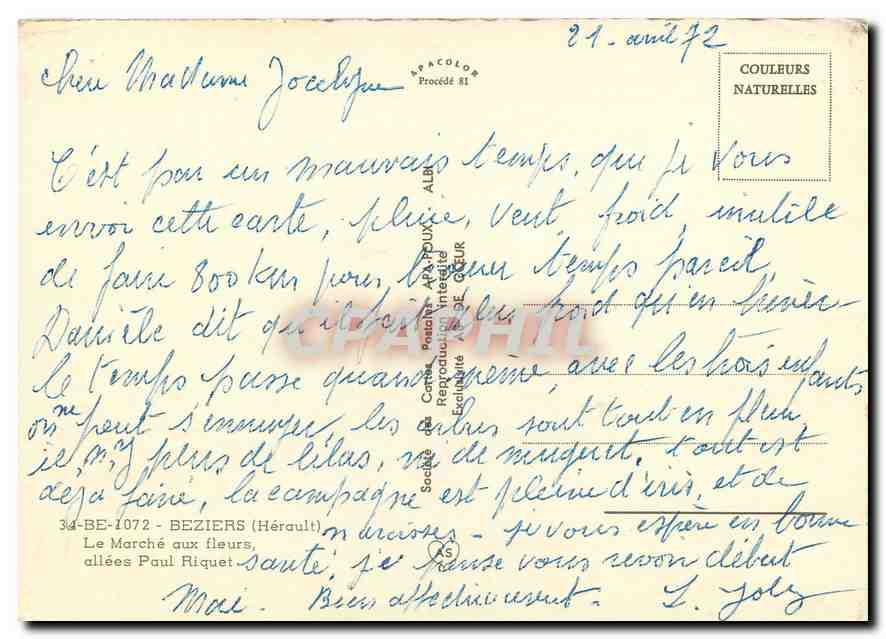 21 avril 72
APACOLOR
Procédé 81
COULEURS
NATURELLES
Chère Madame Jocelyne
C'est par un mauvais temps, que je vous
envoi cette carte, pluie, vent, froid, inutile
de faire 800 km pour trouver temps pareil,
Danièle dit qu'il fait plus froid qu'en hiver -
le temps passe quand même, avec les trois enfants
on ne peut s'ennuyer, les arbres sont tout en fleur,
ici, n'y plus de lilas, ni de muguet, tout est
déja fané, la campagne est pleine d'iris, et de
narcisses - je vous espère en bonne
santé, je pense vous revoir début
Mai - Bien affectueusement - L. Joly
34-BE-1072 - BEZIERS (Hérault)
Le Marché aux fleurs,
allées Paul Riquet
Société des Cartes Postales APA-POUX - ALBI
Reproduction interdite
Exclusivité AS DE CŒUR
AS
CPAPHIL